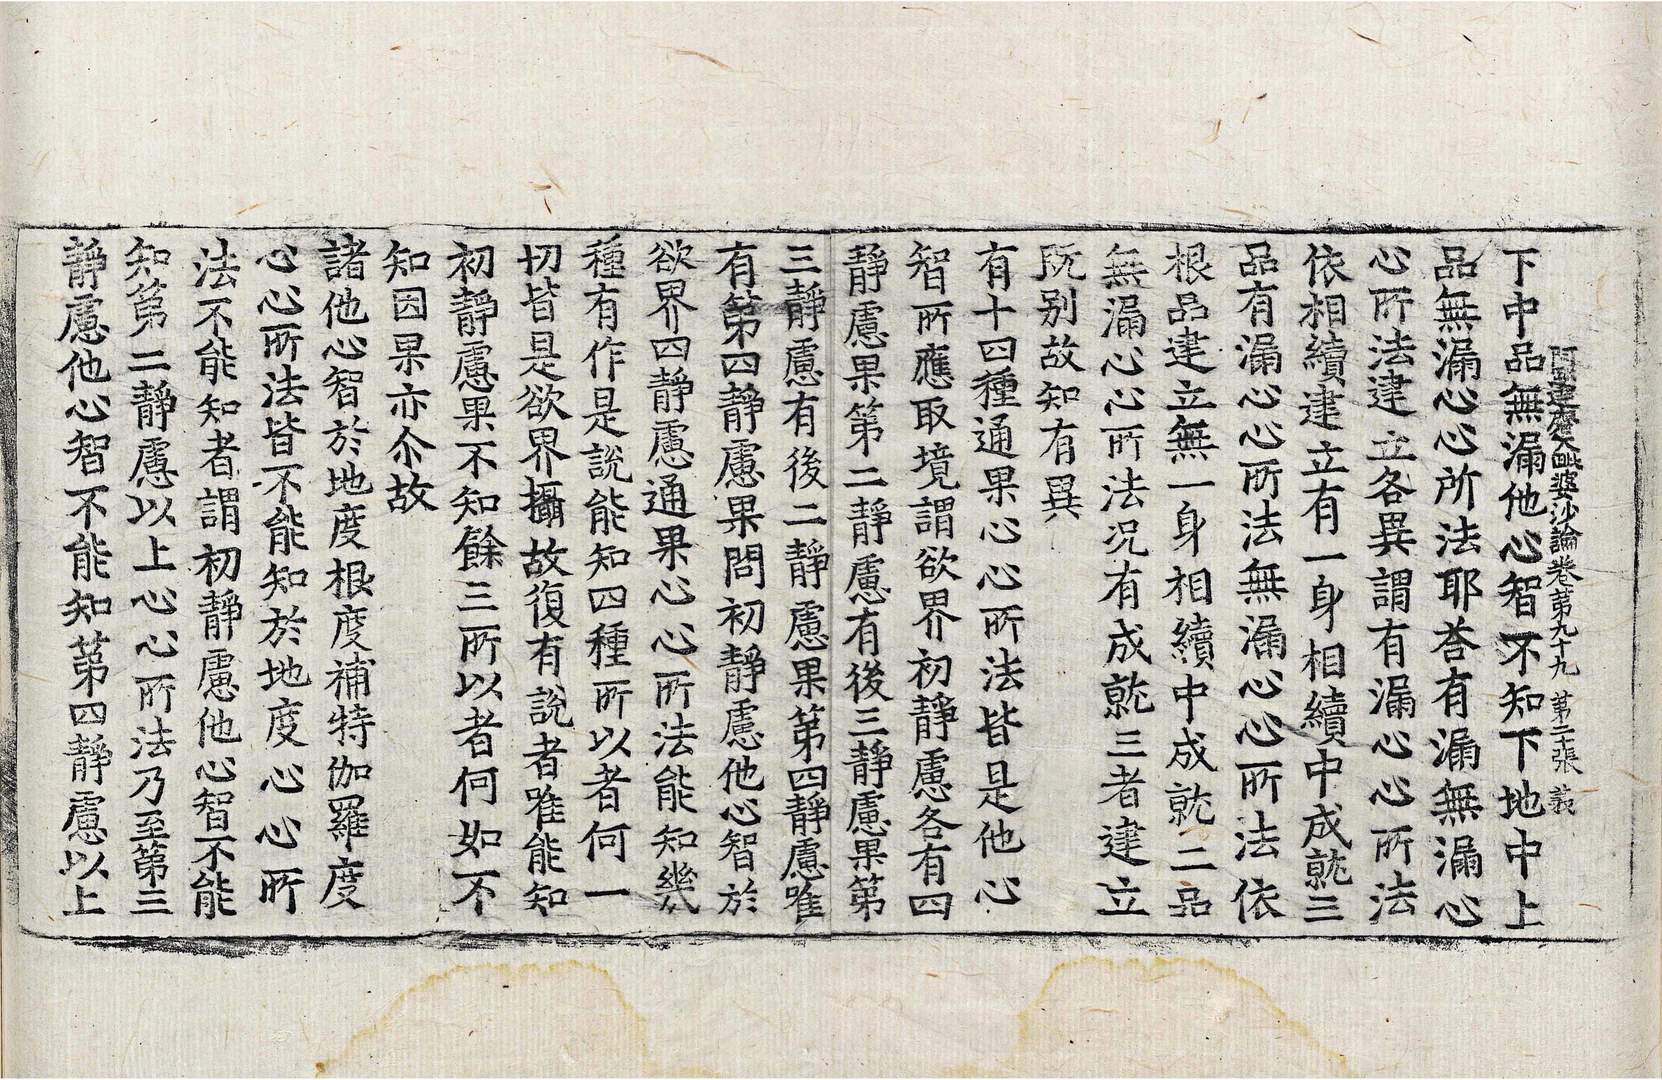 阿毗達磨大毗婆沙論卷第九十九 第三張 義
下中品無漏他心智不知下地中上
品無漏心心所法耶荅有漏無漏心
心所法建立各異謂有漏心心所法
依相續建立有一身相續中成就三
品有漏心心所法無漏心心所法依
根品建立無一身相續中成就二品
無漏心心所法况有成就三者建立
旣别故知有異
有十四種通果心心所法皆是他心
智所應取境謂欲界初靜慮各有四
靜慮果第二靜慮有後三靜慮果第
三靜慮有後二靜慮果第四靜慮唯
有第四靜慮果問初靜慮他心智於
欲界四靜慮通果心心所法能知幾
種有作是說能知四種所以者何一
切皆是欲界攝故復有說者唯能知
初靜慮果不知餘三所以者何如不
知因果亦尒故
諸他心智於地度根度補特伽羅度
心心所法皆不能知於地度心心所
法不能知者謂初靜慮他心智不能
知第二靜慮以上心心所法乃至第三
靜慮他心智不能知第四靜慮以上